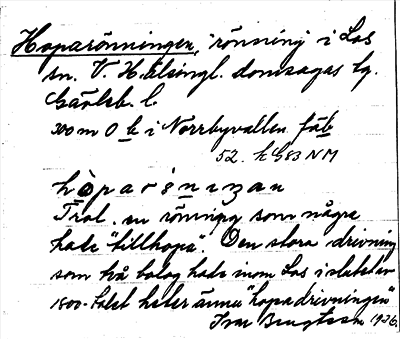 Hoparönningen, "rönning" i Los
sn. V. Hälsingl. domsagas tg.
Gävleb. l.
300 m O k i Norrbyvallen fäb
52. h G83 NM
Trol. en röning som några
hade "tillhopa". Den stora drivning
som två bolag hade inom Los i slutet av
1800-talet heter ännu "hopadrivningen"
Ivar Bengtsson 1926.